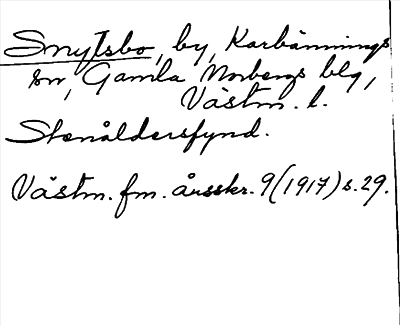 Snytsbo, by, Karbennings
sn, Gamla Norbergs blg,
Västm. l.
Stenåldersfynd.
Västm. fm. årsskr. 9 (1917) s. 29.